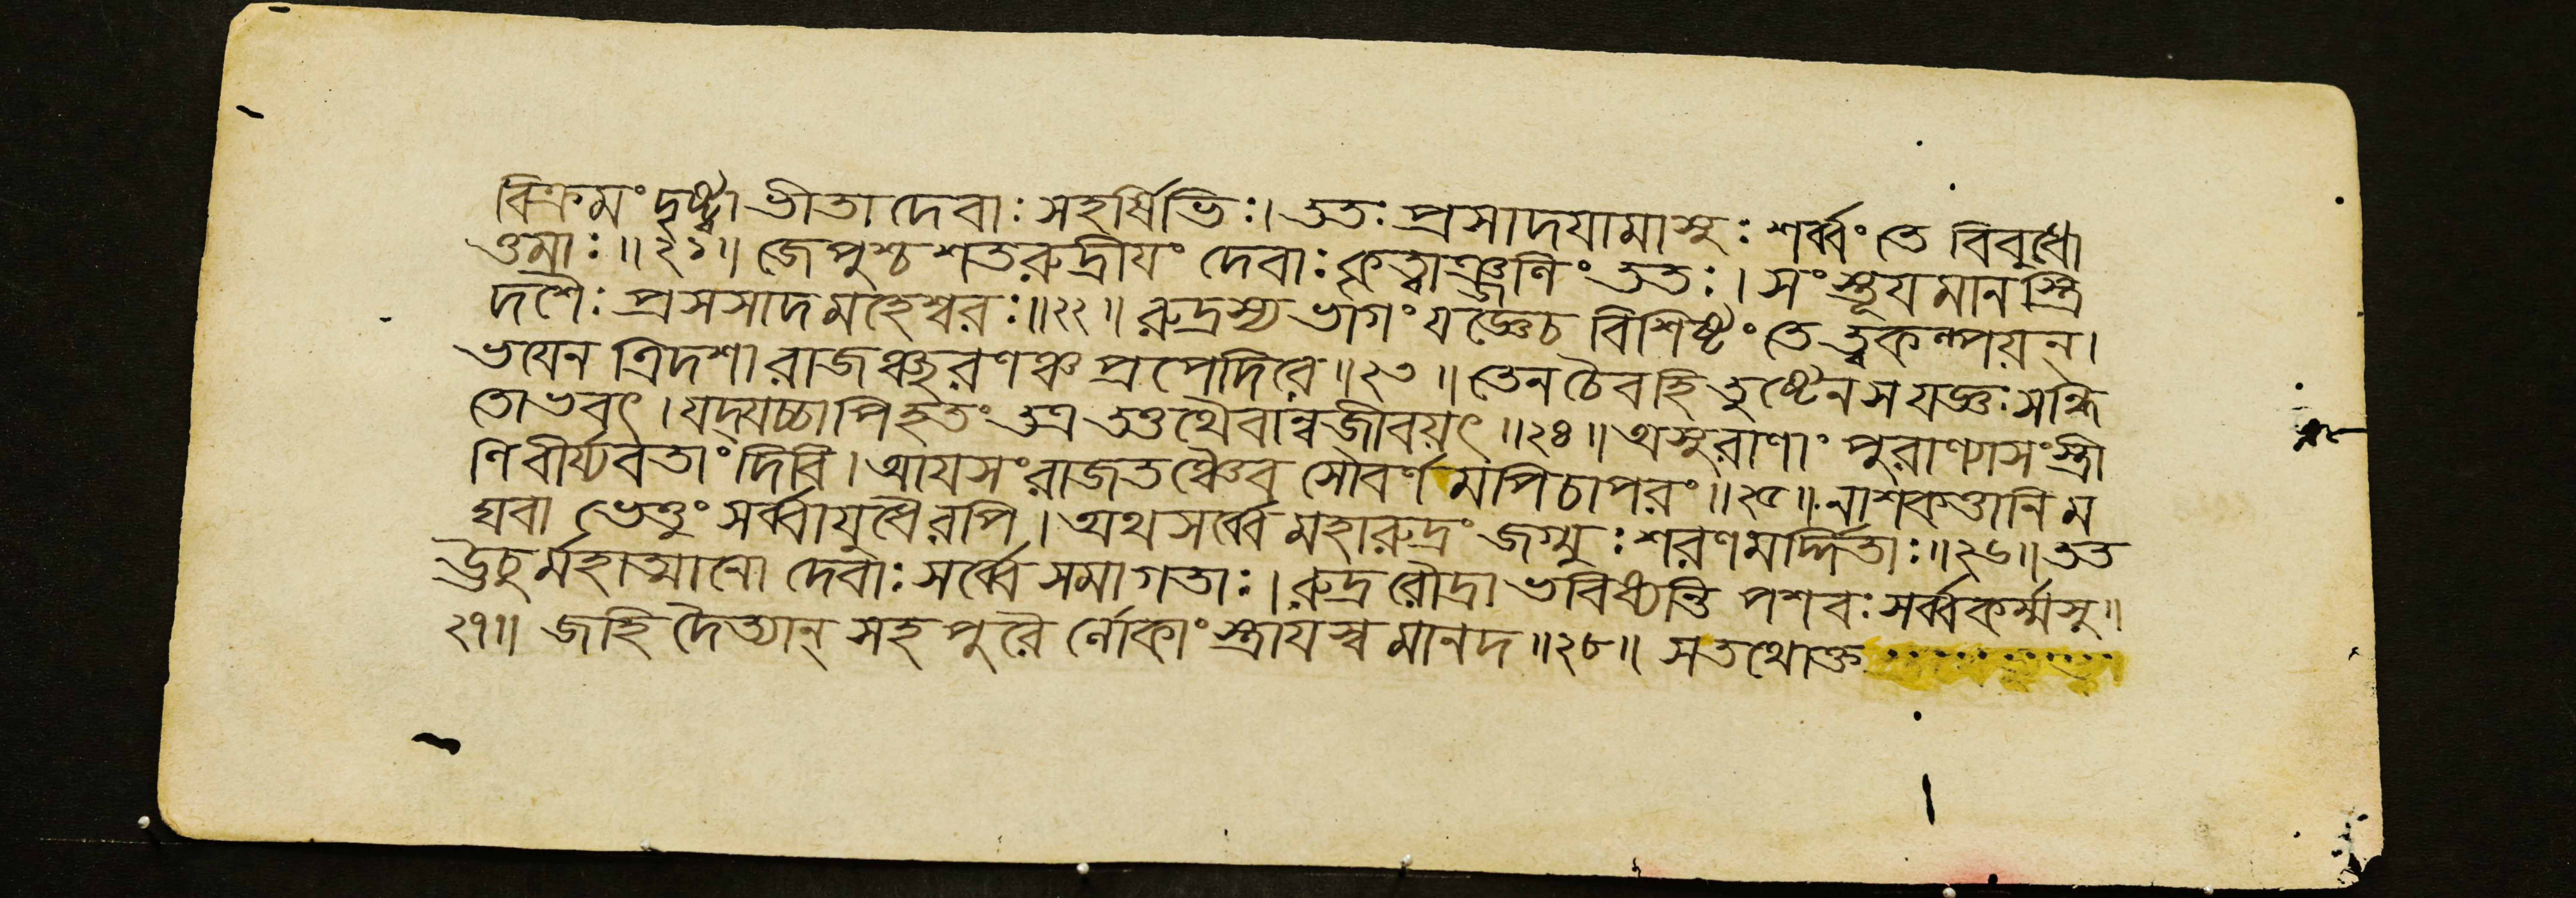 বিক্রমং দৃষ্ট্বা ভীতা দেবাঃ সহর্ষিভিঃ। ততঃ প্রসাদযামাসুঃ শর্ব্বং তে বিবুধো
ত্তমাঃ॥২১॥ জেপুশ্চ শতরুদ্রীযং দেবাঃ কৃত্বাঞ্জলিং ততঃ। সংস্তূযমানস্ত্রি
দশৈঃ প্রসসাদ মহেশ্বরঃ॥২২॥ রুদ্রস্য ভাগং যজ্ঞেচ বিশিষ্টং তে ত্ত্বকল্পয়ন্।
ভযেন ত্রিদশা রাজঞ্ছরণঞ্চ প্রপেদিরে॥২৩॥ তেন চৈবহি তুষ্টেন স যজ্ঞঃ সন্ধি
তোভবৎ। যদ্যচ্চাপি হৃতং তত্র তত্তথৈবান্বজীবয়ৎ॥২৪॥ অসুরাণাং পুরাণ্যাসংস্ত্রী
ণি বীর্য্যবতাং দিবি। আযসং রাজতঞ্চৈব সৌবর্ণমপি চাপরং॥২৫॥ নাশকত্তানি ম
ঘবা ভেত্তুং সর্ব্বাযুধৈরপি। অথ সর্ব্বে মহারুদ্রং জগ্মুঃ শরণমর্দ্দিতাঃ॥২৬॥ তত
ঊচুর্মহাত্মানো দেবাঃ সর্ব্বে সমাগতাঃ। রুদ্র রৌদ্রা ভবিষ্যন্তি পশবঃ সর্ব্বকর্ম্মসু॥
২৭॥ জহি দৈত্যান্ সহ পুরৈ র্লোকাংস্ত্রাযস্ব মানদ॥২৮॥ স তথোক্ত............